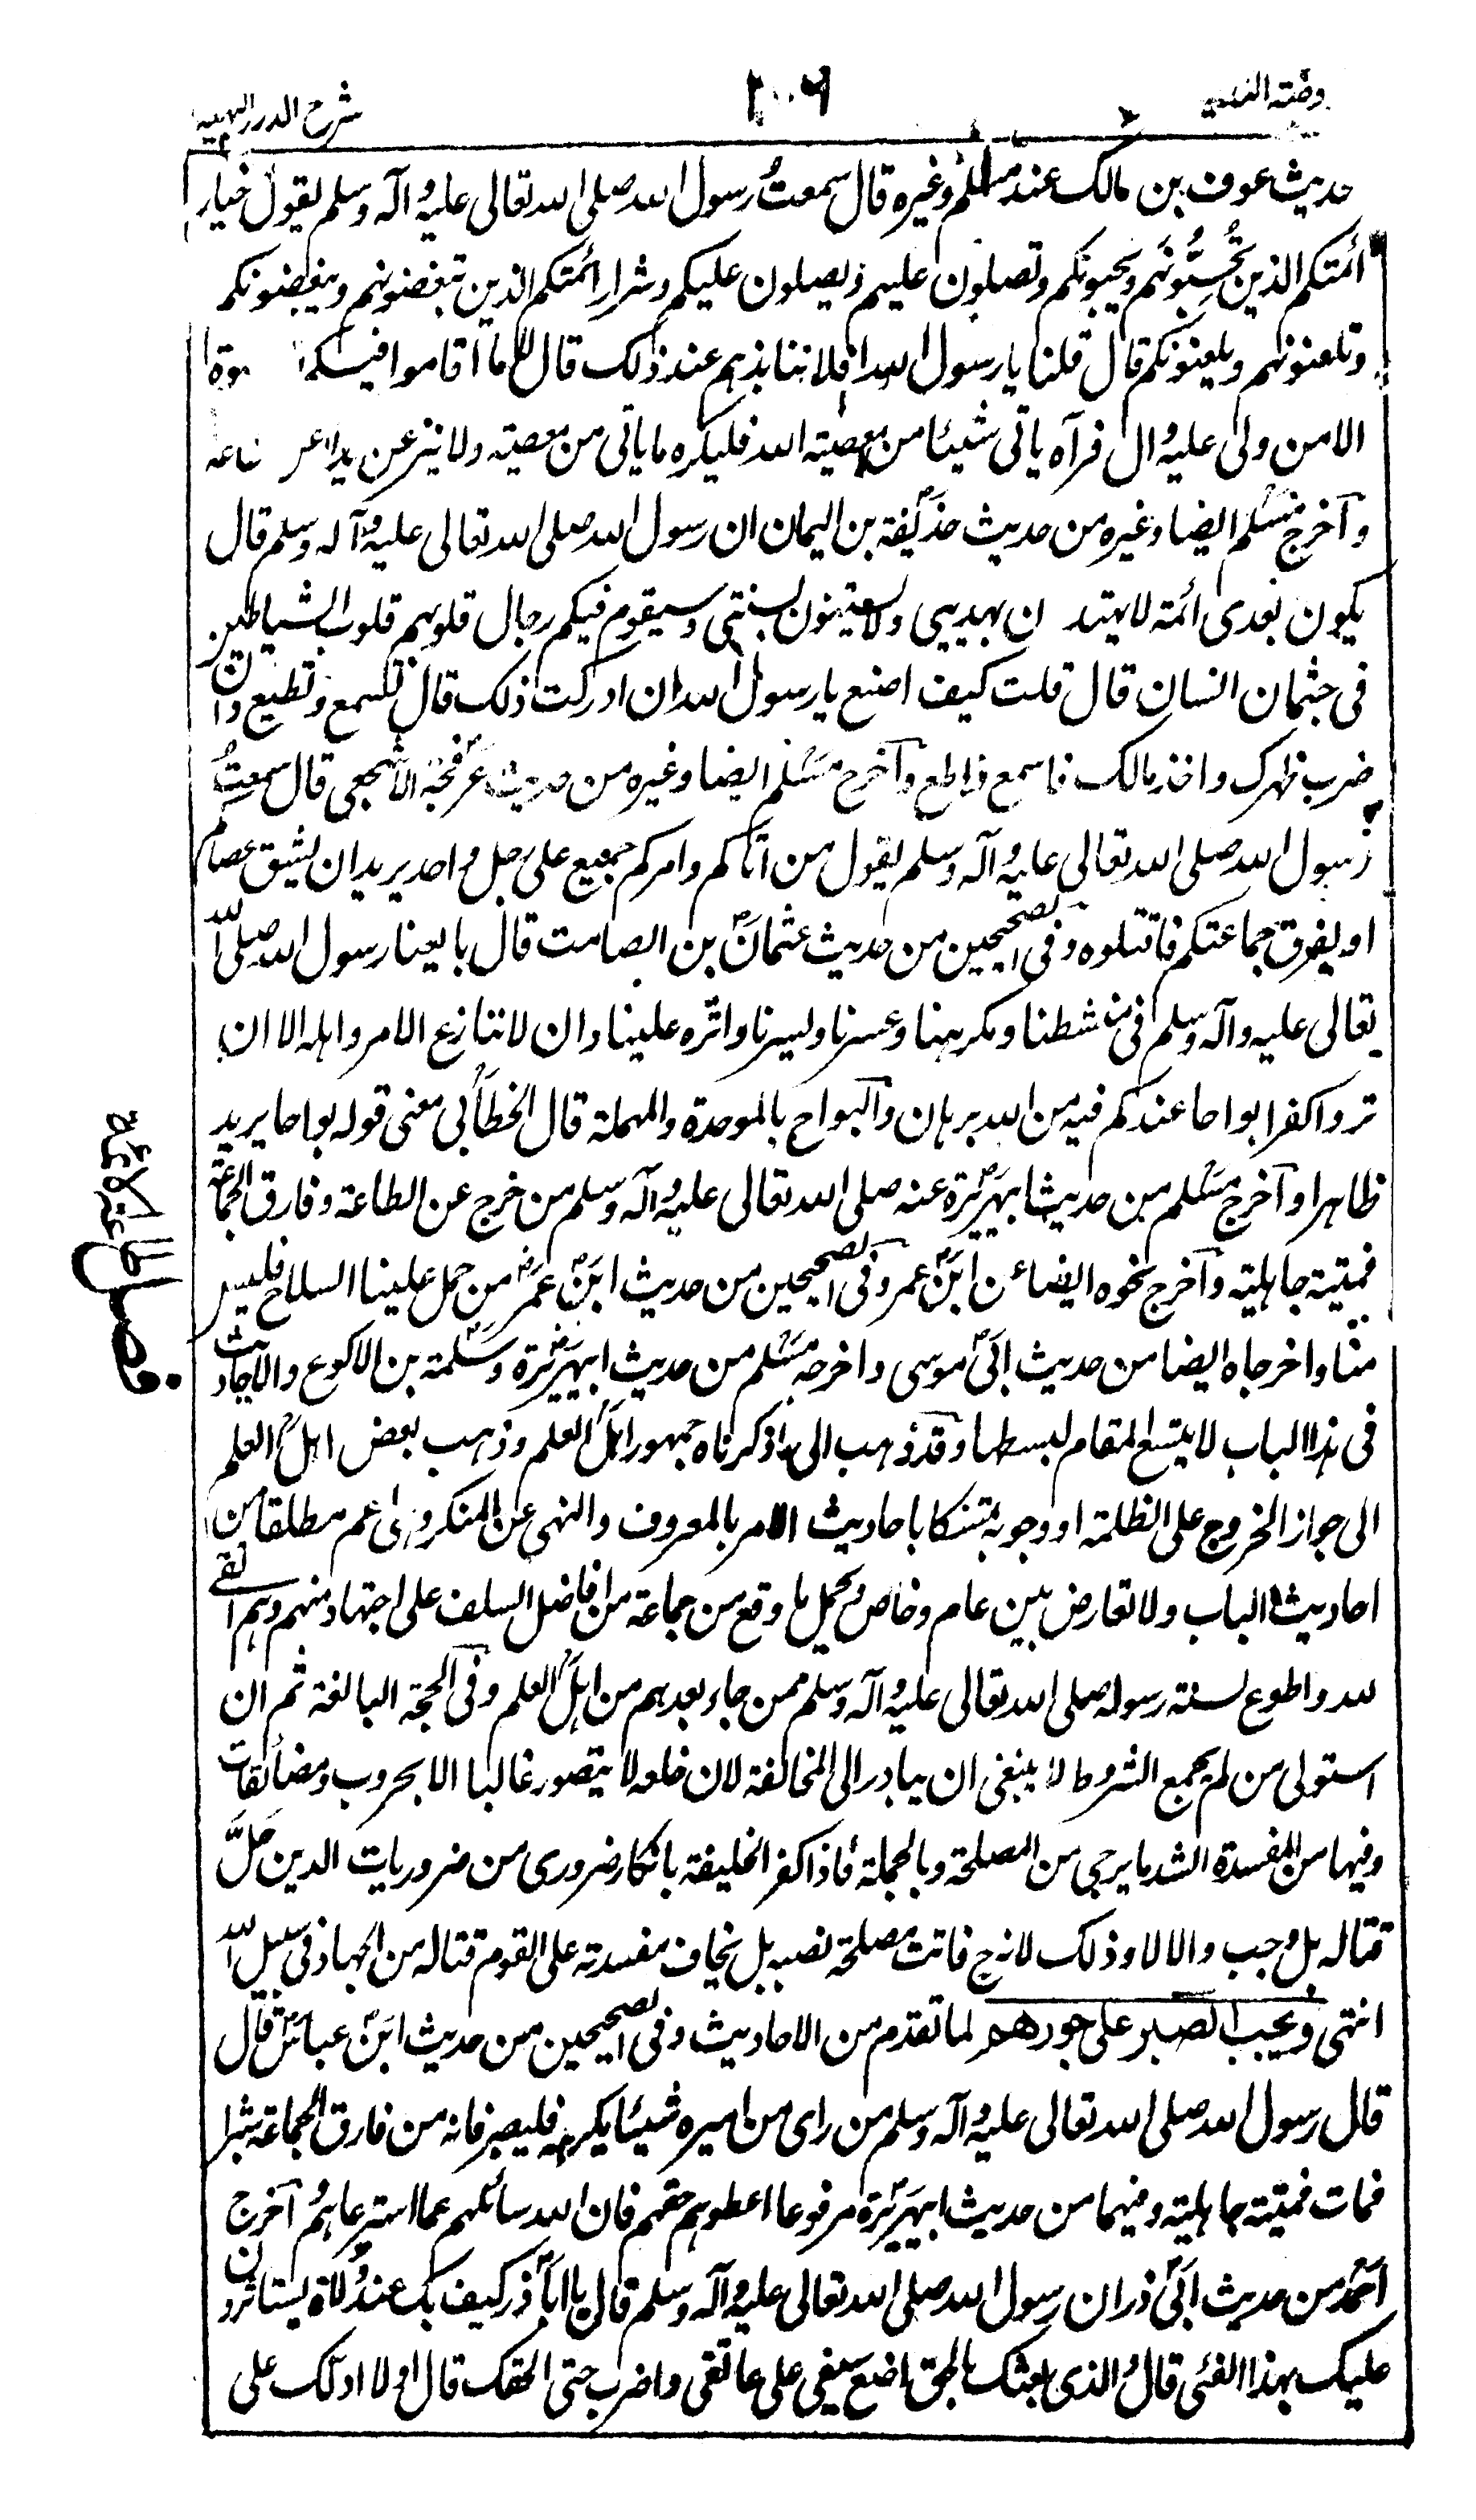 شرح الدرر البهية
حديث عوف بن مالك عند مسلم وغيره قال سمعت رسول الله صلى الله تعالى عليه وآله وسلم يقول خيار
أئمتكم الذين تحبونهم ويحبونكم وتصلون عليهم ويصلون عليكم وشرار أئمتكم الذين تبغضونهم ويبغضونكم
وتلعنونهم ويلعنونكم قال قلنا يا رسول الله افلا ننابذهم عند ذلك قال لا ما اقاموا فيكم
الا من ولى عليه وال فرآه ياتى شيئا من معصية الله فليكره ما ياتى من معصية ولا ينزعن يدا
وآخرج مسلم ايضا وغيره من حديث حذيفة بن اليمان ان رسول الله صلى الله تعالى عليه وآله وسلم قال
يكون بعدى ائمة لا يهتدون بهديى ولا يستنون بسنتى وسيقوم فيكم رجال قلوبهم قلوب الشياطين
فى جثمان انسان قال قلت كيف اصنع يا رسول الله ان ادركت ذلك قال تسمع وتطيع وان
ضرب ظهرك واخذ مالك فاسمع واطع وآخرج مسلم ايضا وغيره من حديث عرفجة الاشجعى قال سمعت
رسول الله صلى الله تعالى عليه وآله وسلم يقول من اتاكم وامركم جميع على رجل واحد يريد ان يشق عصاكم
او يفرق جماعتكم فاقتلوه وفى الصحيحين من حديث عثمان بن الصامت قال بايعنا رسول الله صلى الله
تعالى عليه وآله وسلم فى منشطنا ومكرهنا وعسرنا ويسرنا واثره علينا وان لا ننازع الامر واهله الا ان
تروا كفرا بواحا عندكم فيه من الله برهان والبواح بالموحدة والمهملة قال الخطابى معنى قوله بواحا يريد
ظاهرا وآخرج مسلم من حديث ابيهريرة عنه صلى الله تعالى عليه وآله وسلم من خرج عن الطاعة وفارق الجماعة
فميتته جاهلية وآخرج نحوه ايضا عن ابن عمر وفى الصحيحين من حديث ابن عمر من حمل علينا السلاح فليس
منا واخرجاه ايضا من حديث ابى موسى واخرجه مسلم من حديث ابيهريرة وسلمة بن الاكوع والاحاديث
فى هذا الباب لا يتسع المقام لبسطها وقد ذهب الى ما ذكرناه جمهور اهل العلم وذهب بعض اهل العلم
الى جواز الخروج على الظلمة او وجوبه تمسكا باحاديث الامر بالمعروف والنهى عن المنكر وهى اعم مطلقا من
احاديث الباب ولا تعارض بين عام وخاص ويحمل ما وقع من جماعة من افاضل السلف على اجتهاد منهم وهم اتقى
لله واطوع لسنة رسوله صلى الله تعالى عليه وآله وسلم ممن جاء بعدهم من اهل العلم وفى الحجة البالغة ثم ان
استولى من لم يجمع الشروط لا ينبغى ان يبادر الى المخالفة لان خلعه لا يتصور غالبا الا بحروب ومضايقات
وفيها من المفسدة اشد ما يرجى من المصلحة وبالجملة فاذا كفر الخليفة بانكار ضرورى من ضروريات الدين حل
قتاله بل وجب والا لا وذلك لانه ح فاتت مصلحة نصبه بل يخاف مفسدته على القوم قتاله من الجهاد فى سبيل الله
انتهى ويجب الصبر على جورهم لما تقدم من الاحاديث وفى الصحيحين من حديث ابن عباس قال
قال رسول الله صلى الله تعالى عليه وآله وسلم من راى من اميره شيئا يكرهه فليصبر فانه من فارق الجماعة شبرا
فمات فميتته جاهلية وفيهما من حديث ابيهريرة مرفوعا اعطوهم حقهم فان الله سائلهم عما استرعاهم وآخرج
احمد من حديث ابى ذر ان رسول الله صلى الله تعالى عليه وآله وسلم قال يا ابا ذر كيف بك عند ولاة يستاثرون
عليك بهذا الفئى قال والذى بعثك بالحق اضع سيفى على عاتقى واضرب حتى الحقك قال اولا ادلك على